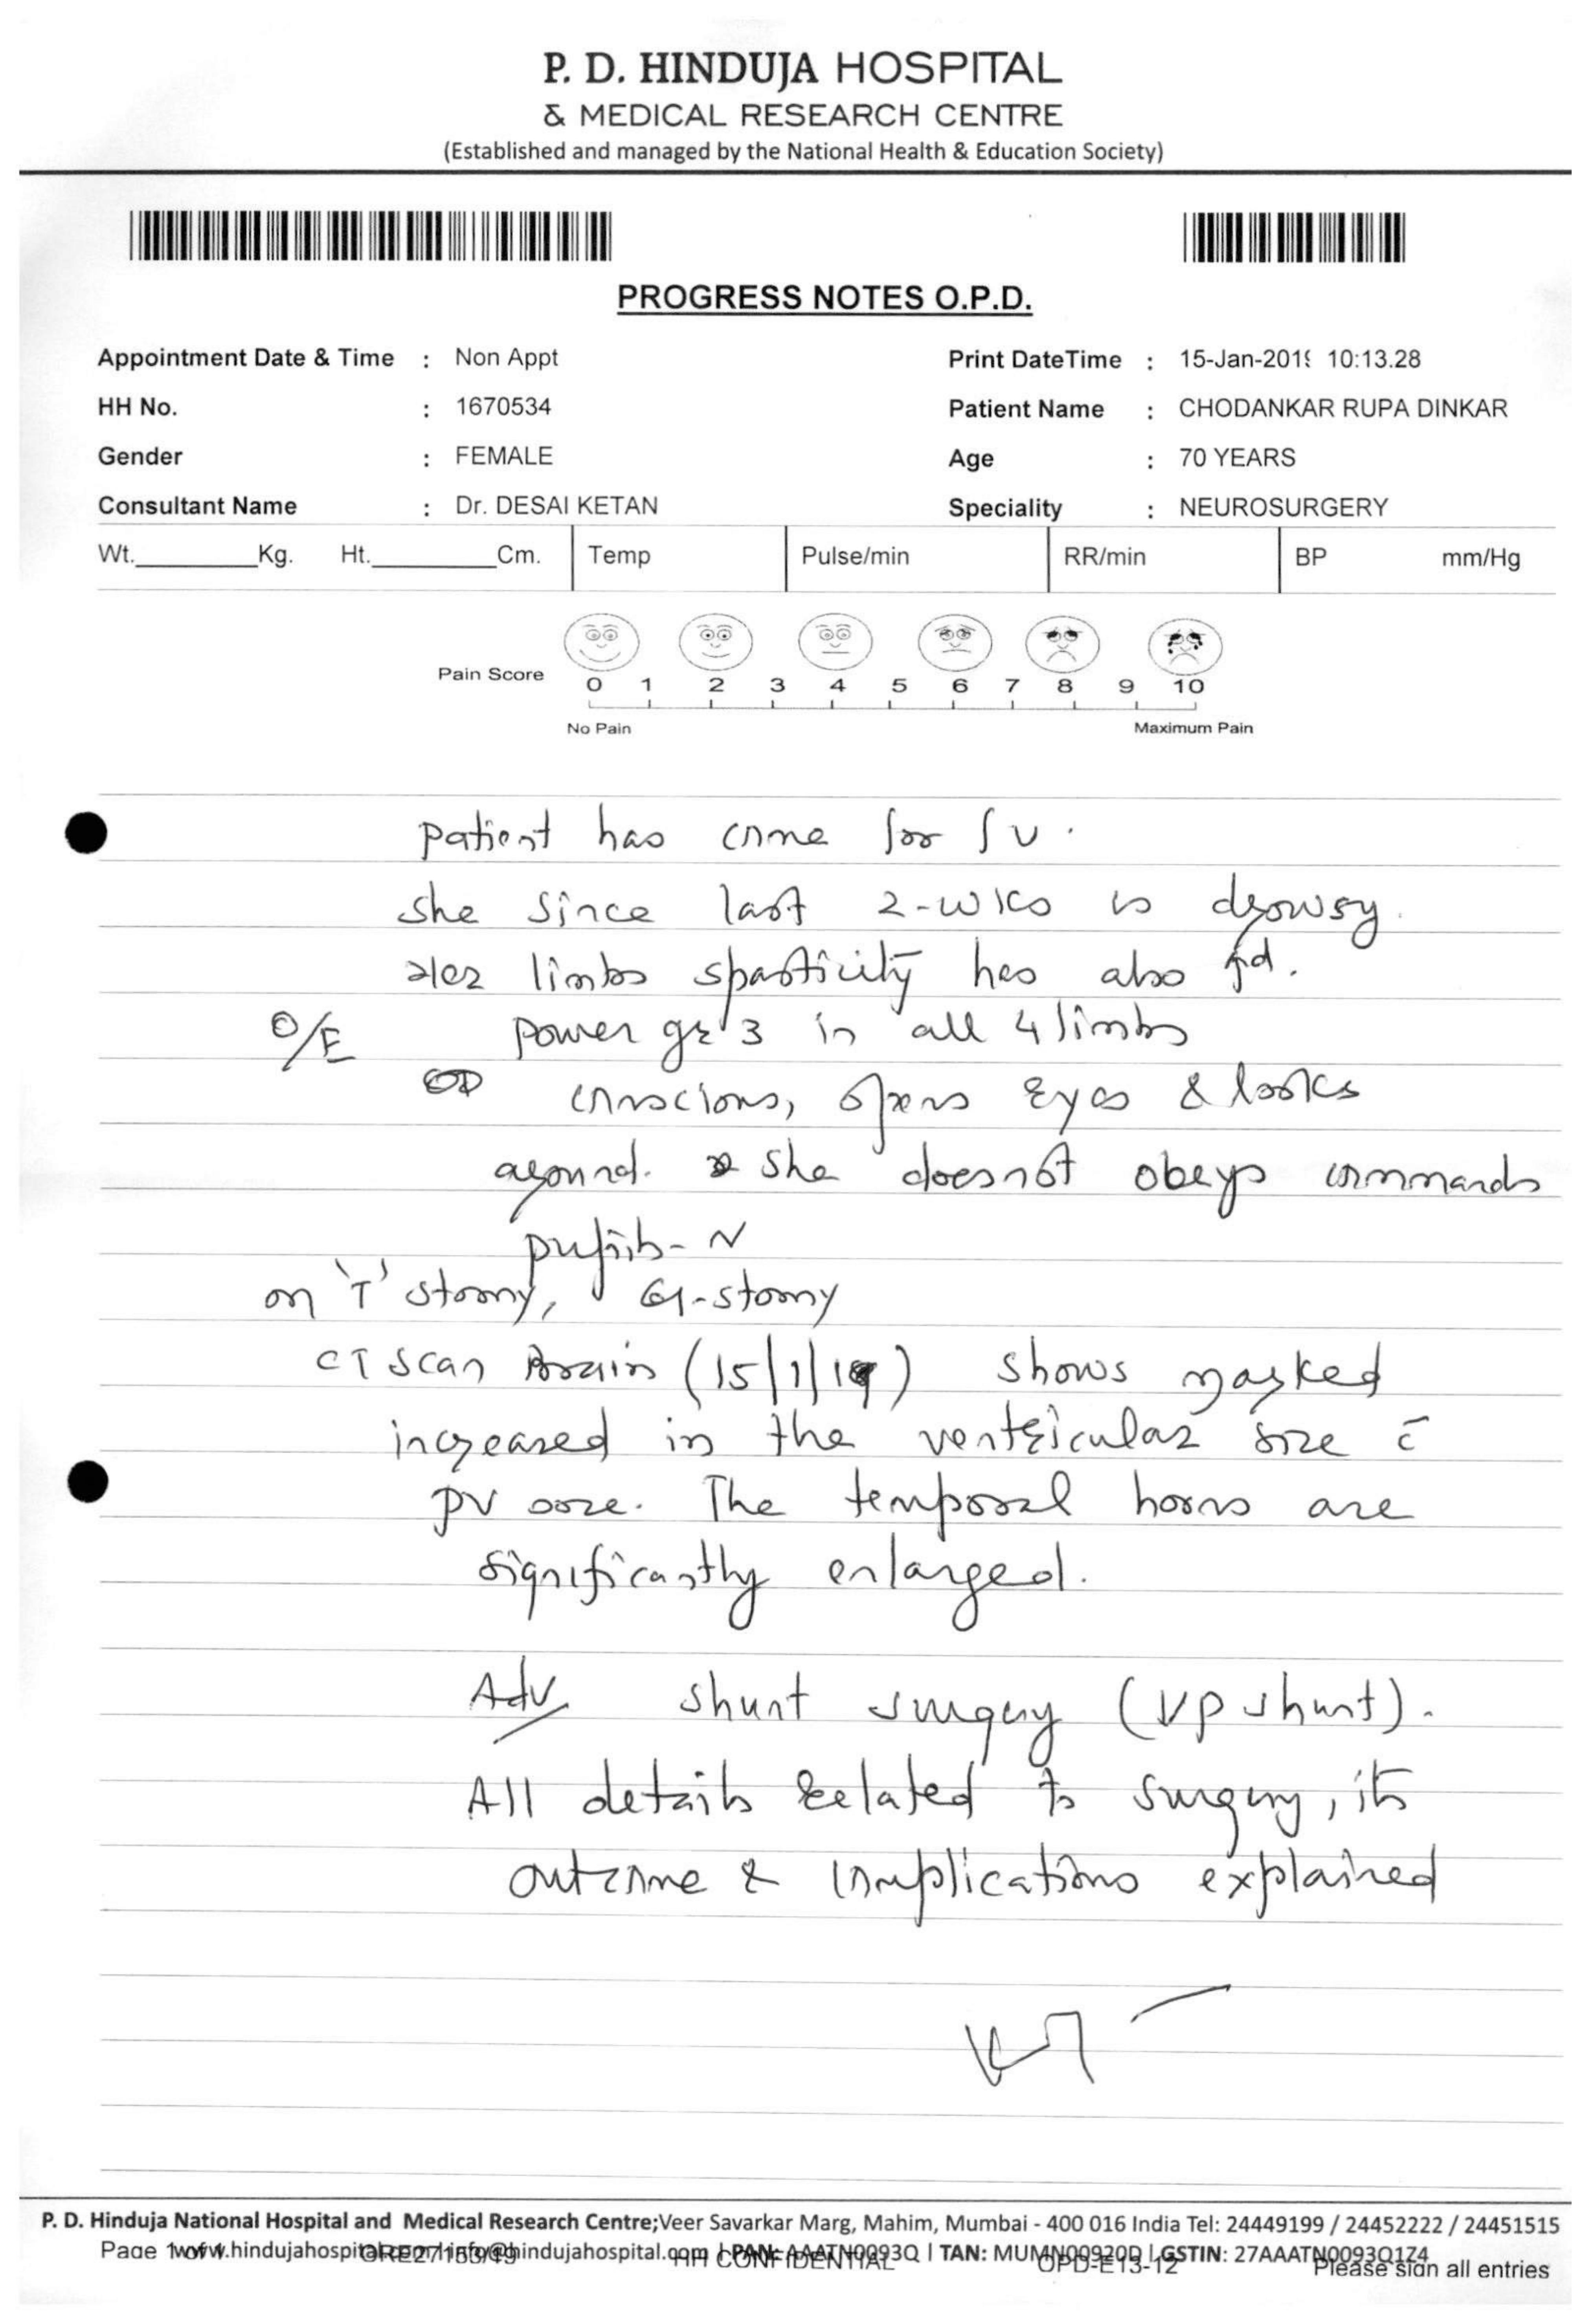 P. D. HINDUJA HOSPITAL
& MEDICAL RESEARCH CENTRE
(Established and managed by the National Health & Education Society)
PROGRESS NOTES O.P.D.
Appointment Date & Time : Non Appt Print DateTime : 15-Jan-2019 10:13.28
HH No. : 1670534 Patient Name : CHODANKAR RUPA DINKAR
Gender : FEMALE Age : 70 YEARS
Consultant Name : Dr. DESAI KETAN Speciality : NEUROSURGERY
Wt. Kg. Ht. Cm. Temp Pulse/min RR/min BP mm/Hg
Pain Score 0 1 2 3 4 5 6 7 8 9 10
No Pain Maximum Pain
patient has come for
she since last 2-wks is drowsy.
limbs spasticity has also ↑d.
O/E power gr 3 in all 4 limbs
conscious, opens Eyes & looks
around. she doesnot obeys commands
pupils - N
on 'T' stomy, G-stomy
CT Scan Brain (15/1/19) shows marked
increased in the ventricular size c̄
PV ooze. The temporal horns are
significantly enlarged.
Adv shunt surgery (VP shunt).
All details related to surgery, its
outcome & complications explained
P. D. Hinduja National Hospital and Medical Research Centre;Veer Savarkar Marg, Mahim, Mumbai - 400 016 India Tel: 24449199 / 24452222 / 24451515
Page 1 of 1 www.hindujahospital.com info@hindujahospital.com | PAN: AAATN0093Q | TAN: MUMN00920D | GSTIN: 27AAATN0093Q1Z4
HH CONFIDENTIAL OPD-E13-12 Please sign all entries